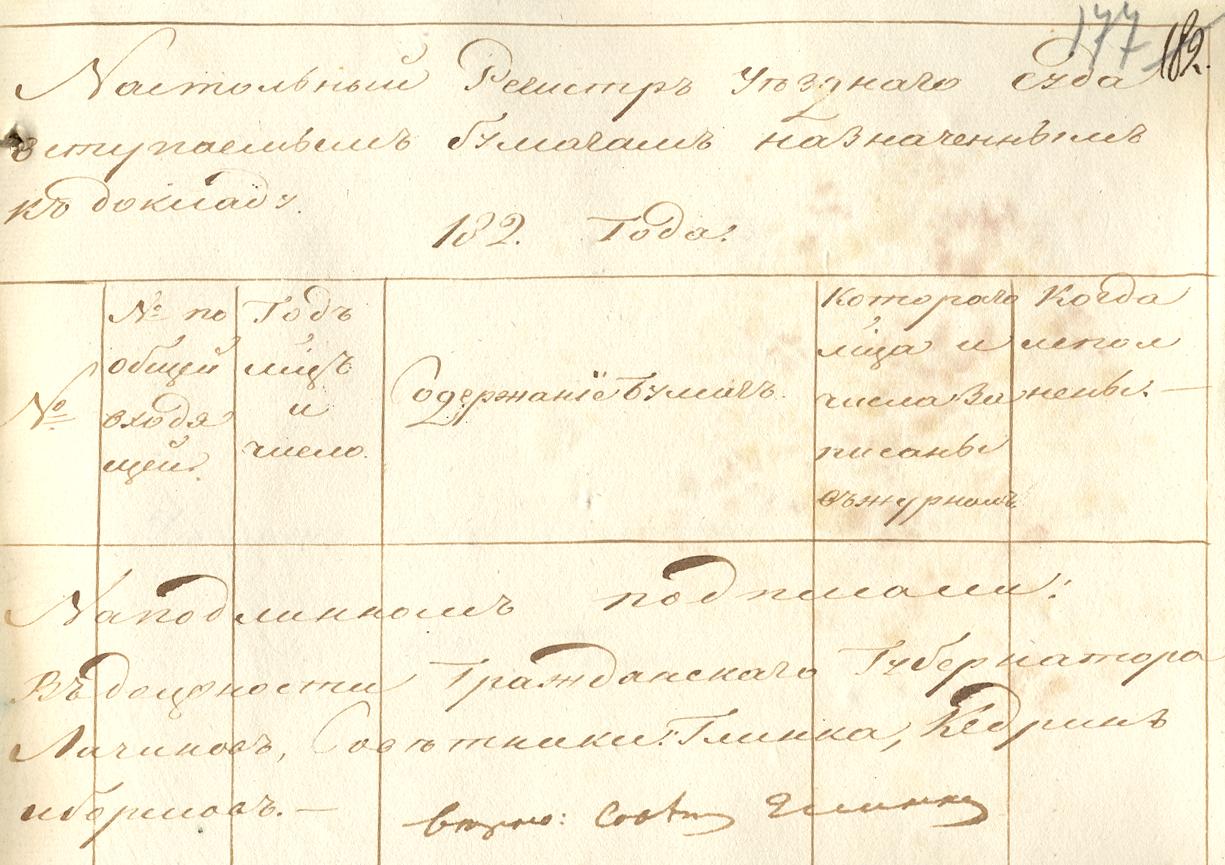 177 182.
Настольный Регистръ Уѣзднаго Суда
вступаемымъ бумагамъ назначеннымъ
къ докладу.
182. Года.
№
№ по
общей
входя
щей.
Годъ
мцъ
и
число.
Содержаніе бумагъ.
Котораго
мца и
числа За
писаны
въ журналъ
Когда
испол
нены. —
На подлинномъ подписали:
Въ должности Гражданскаго Губернатора
Лачиновъ, Совѣтники: Глинка, Кедринъ
и
вѣрно: Совѣт